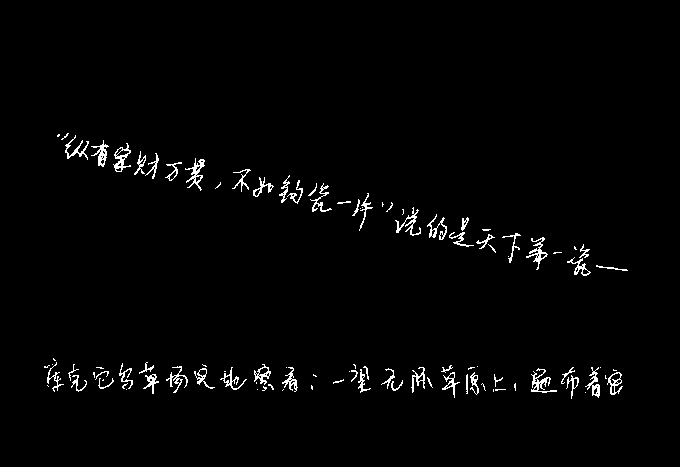 “纵有家财万贯，不如钧瓷一片”说的是天下第一瓷—
库克它乌草场实地察看：一望无际草原上，遍布着密